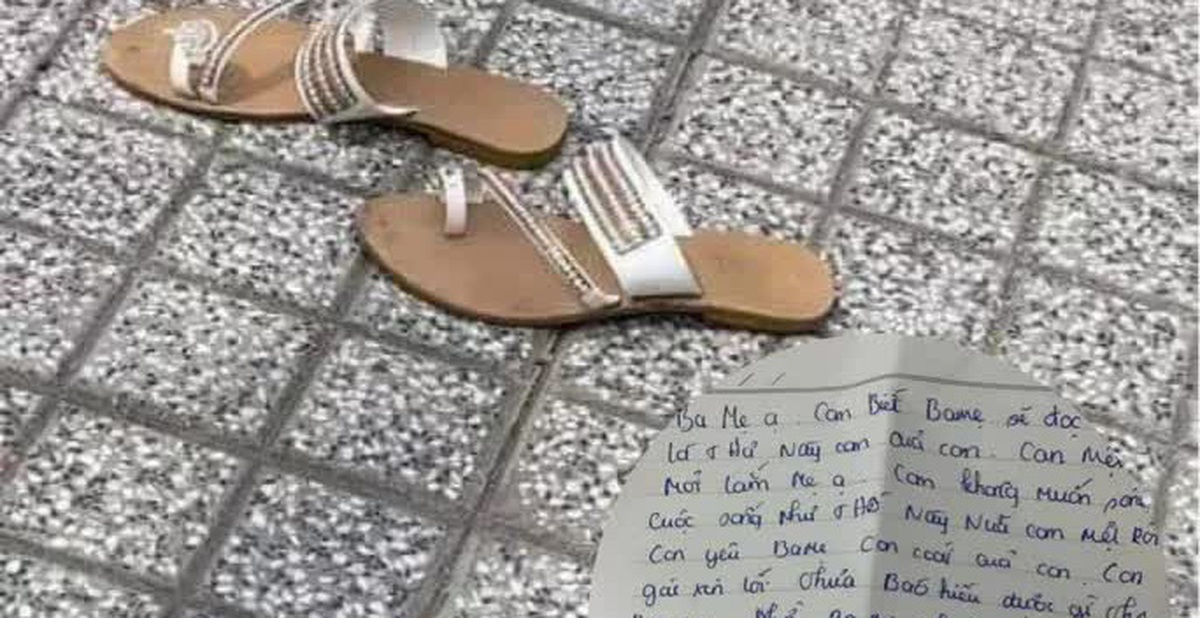 Ba Mẹ ạ. Con Biết Bamẹ sẽ đọc
lá THư Này con của con. Con Mệt
Mỏi lắm Mẹ ạ. Con không muốn
cuộc sống Như THế Này Nữa con mệt Rồi
Con yêu Bame Con của con. Con
gái xin lỗi chưa Báo hiếu được gì cho